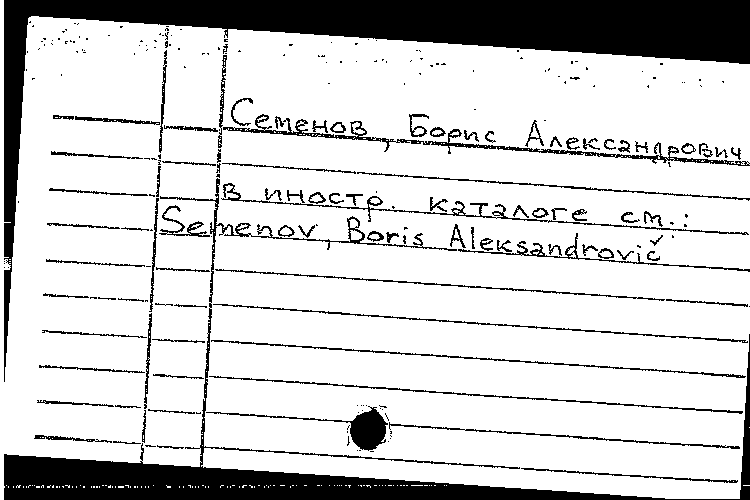 Семенов, Борис Александрович
в иностр. каталоге см.:
Semenov, Boris Aleksandrovič